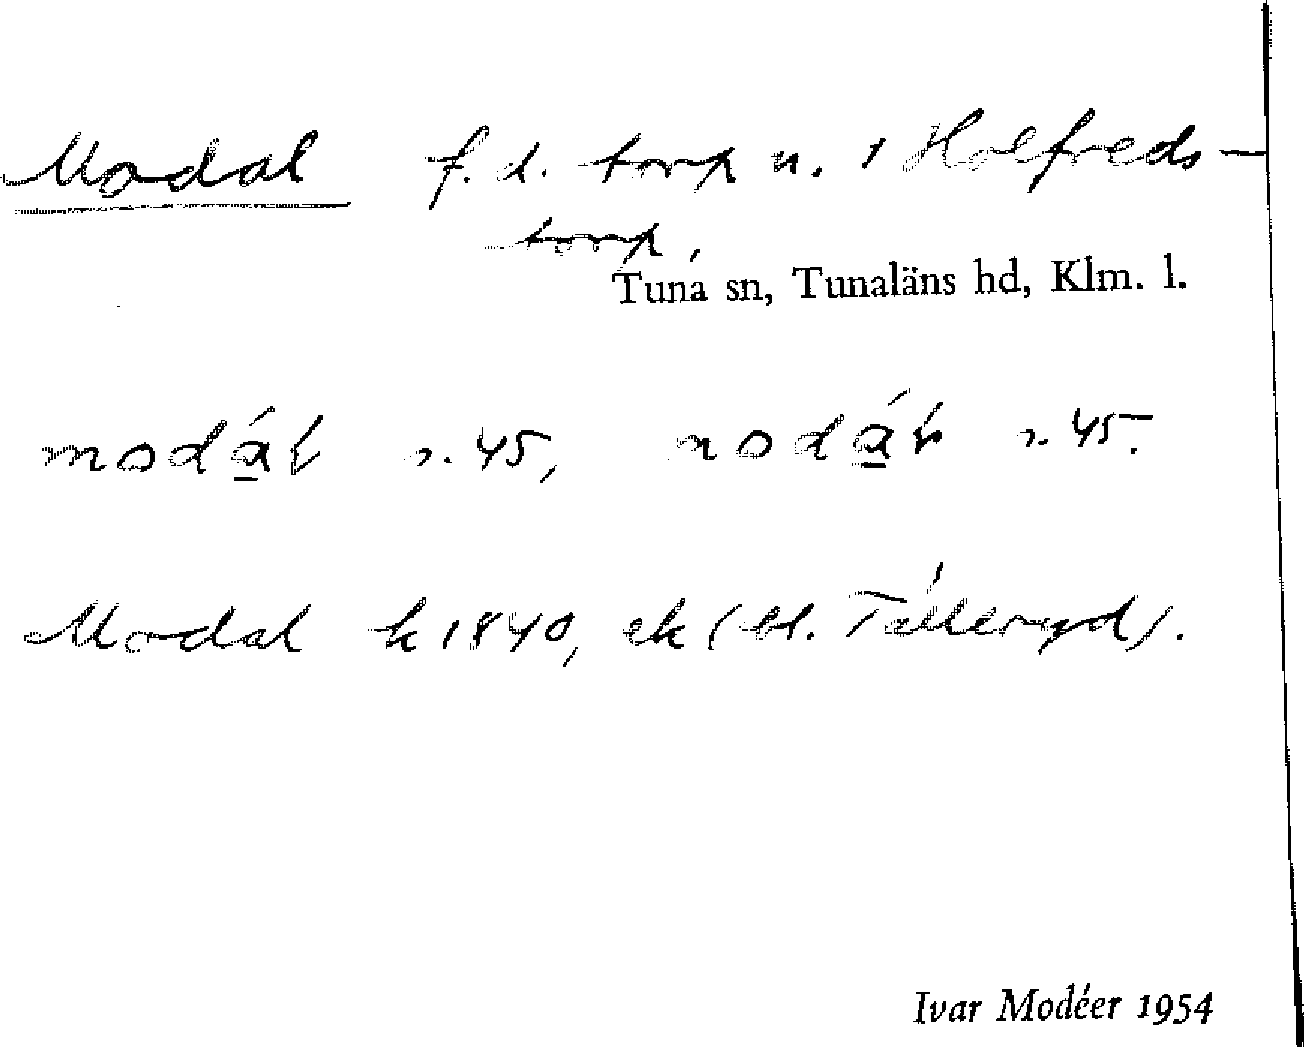 Modal f. d. torp u. 1 Holfreds-
torp,
Tuna sn, Tunaläns hd, Klm. l.
modát s. 45, nodát s. 45.
Modal k 1840, ek (bl. Tälleryd).
Ivar Modéer 1954